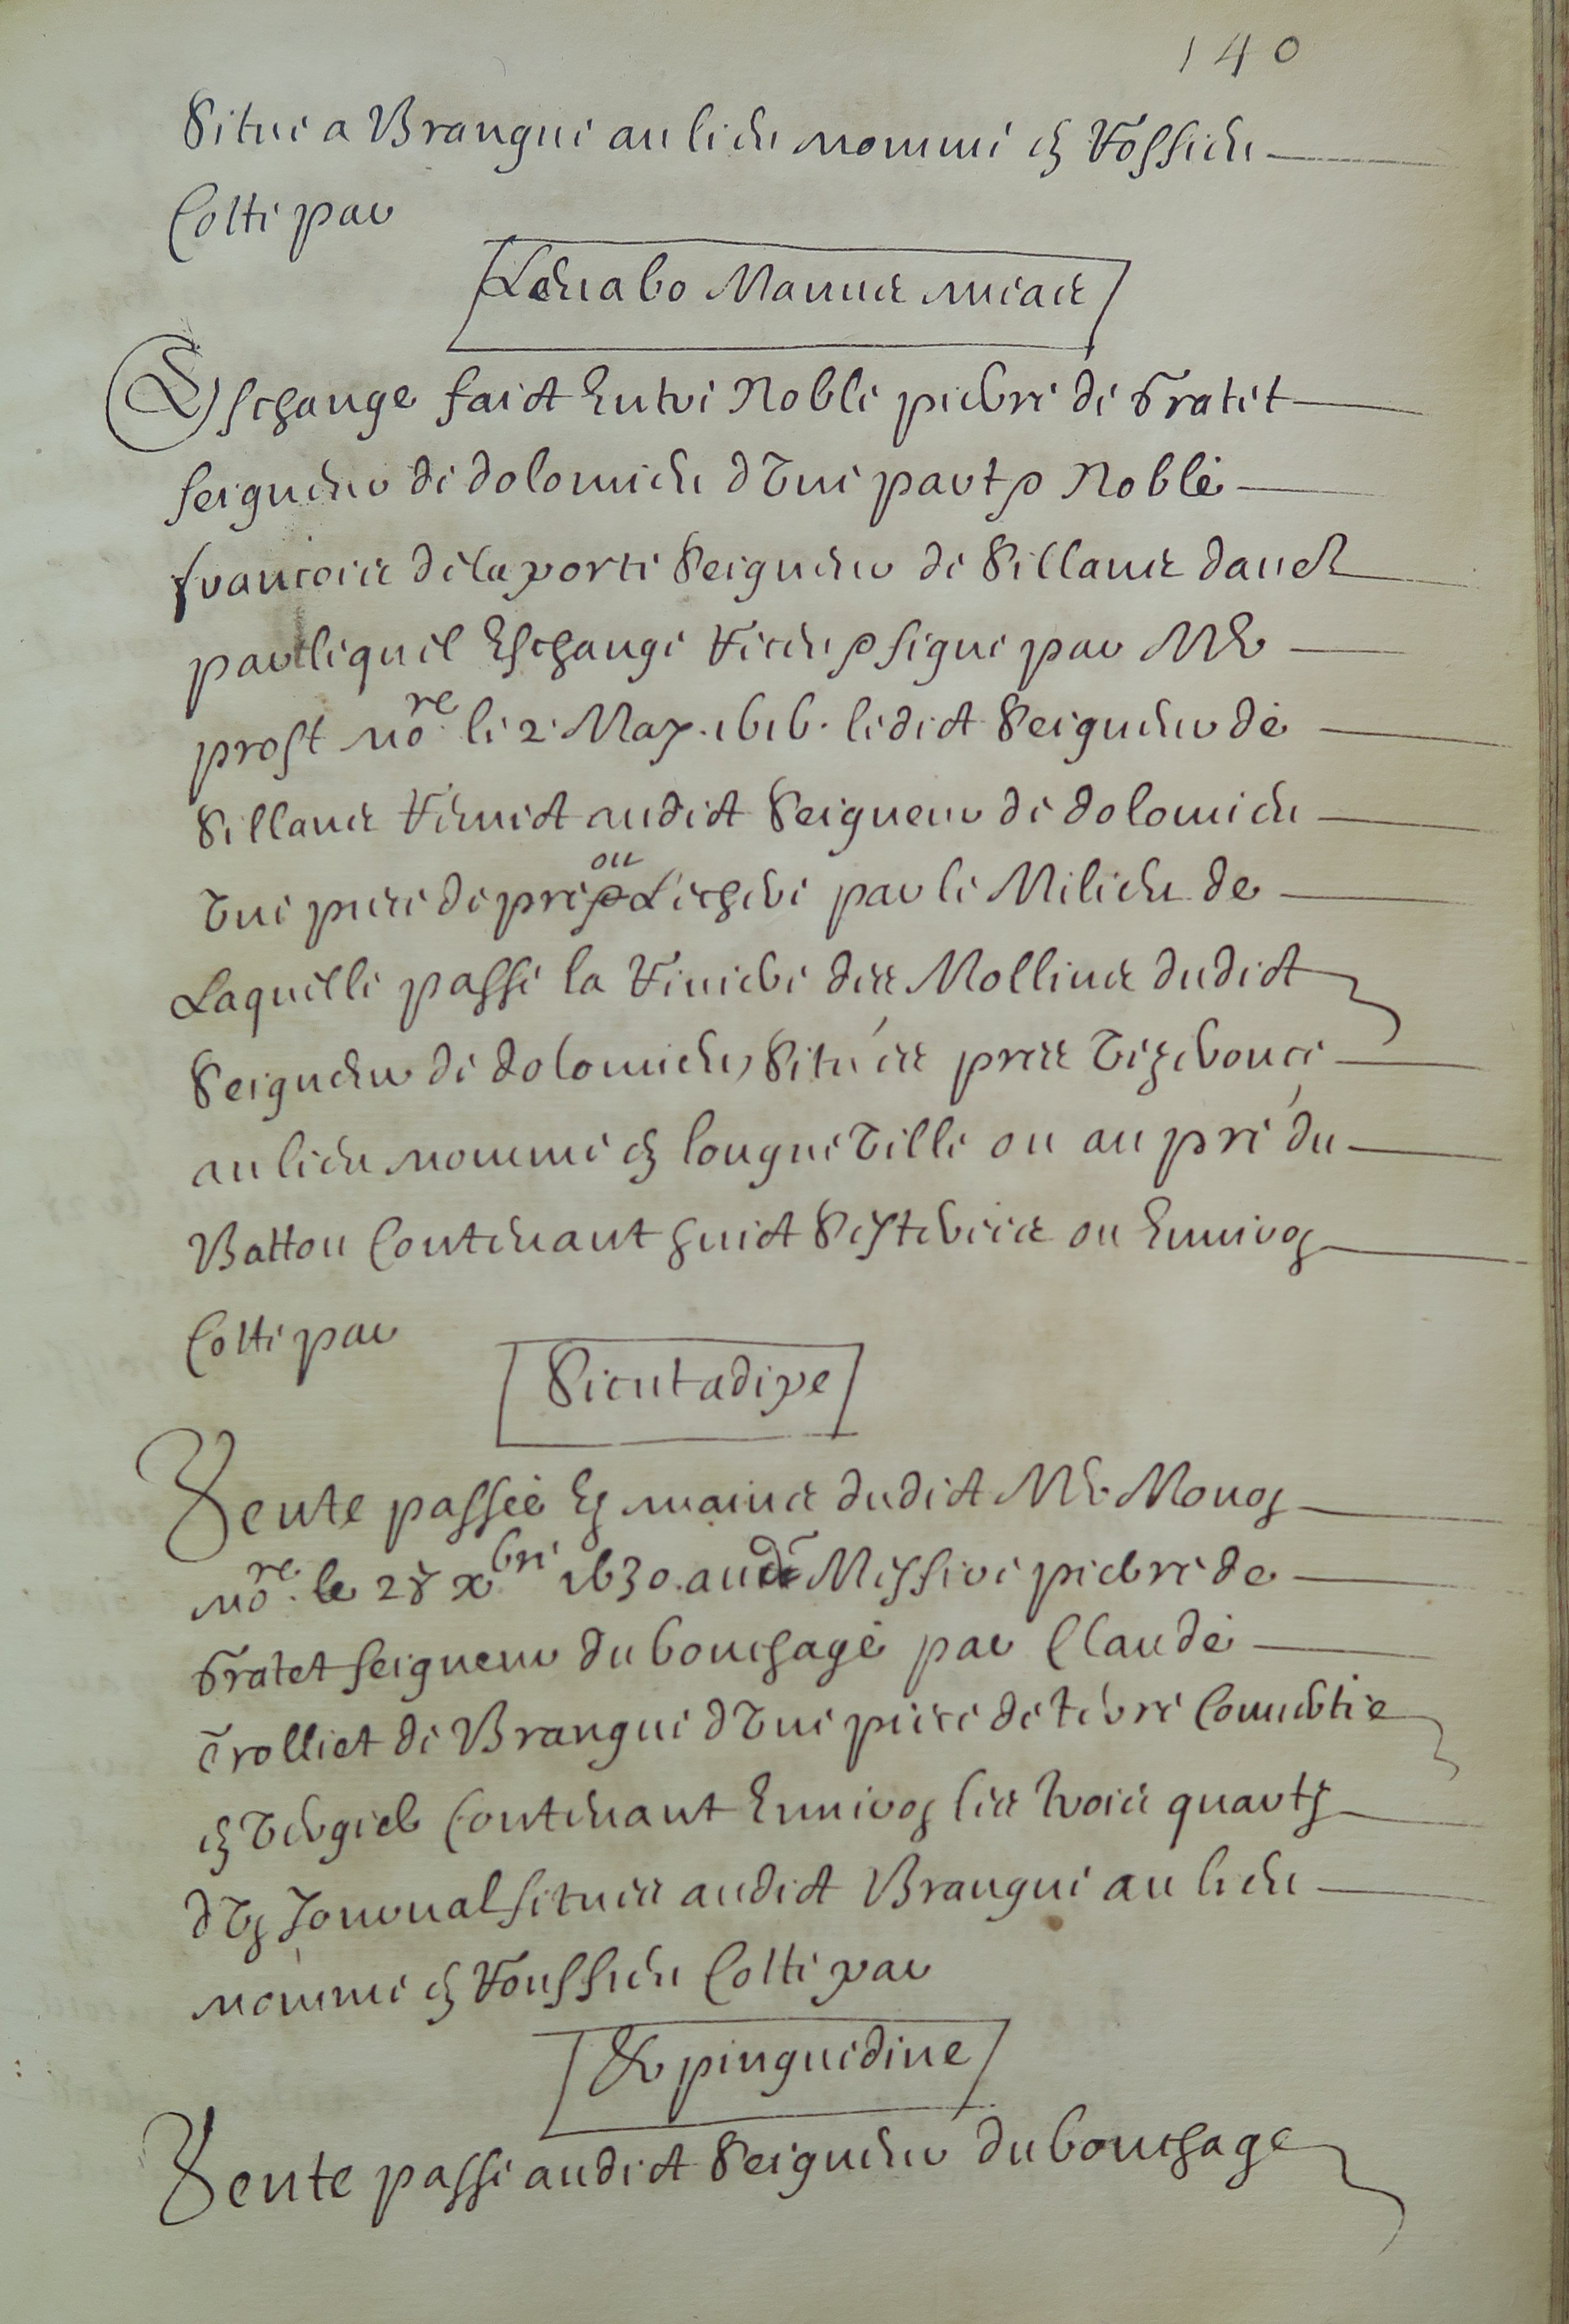 140
Situé a Brangue au lieu nommé en Vossieu
Cotté par
Leuabo Manus meas
Eschange faict Entre Noble pierre de Gratet
seigneur de dolomieu d'Vne part & Noble
francois de la porte Seigneur de Sillans dauctre
par lequel Eschange Receu & signé par Me
prost nore le 2 May 1616 ledict Seigneur de
Sillans Remect audict Seigneur de dolomieu
Vne piece de pré ou Leschere par le Milieu de
Laquelle passe la Riuiere des Mollins dudict
Seigneur de dolomieu, Situées pres Vezeronce
au lieu nommé en longueville ou au pré du
Batton Contenant huict Sesterees ou Enuiron
Cotté par
Sicut adipe
Vente passée Es mains dudict Me Monon
nore le 28 xbre 1630 audt Messire pierre de
Gratet seigneur du bouchage par Claude
Trolliet de Brangue d'Vne piece de terre Conuertie
en Vergier Contenant Enuiron les trois quartz
d'Vn Journal situés audict Brangue au lieu
nommé en Voussieu Cotté par
Et pinguedine
Vente passé audict Seigneur du bouchage